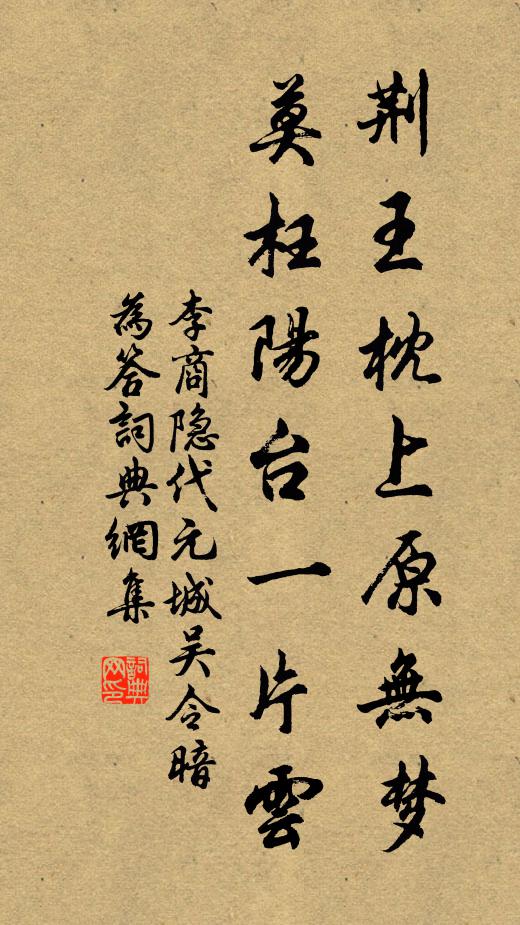 荆王枕上原無梦
莫枉陽台一片雲
李商隐代元城吴令暗
為答詞典網集
詞典
网印